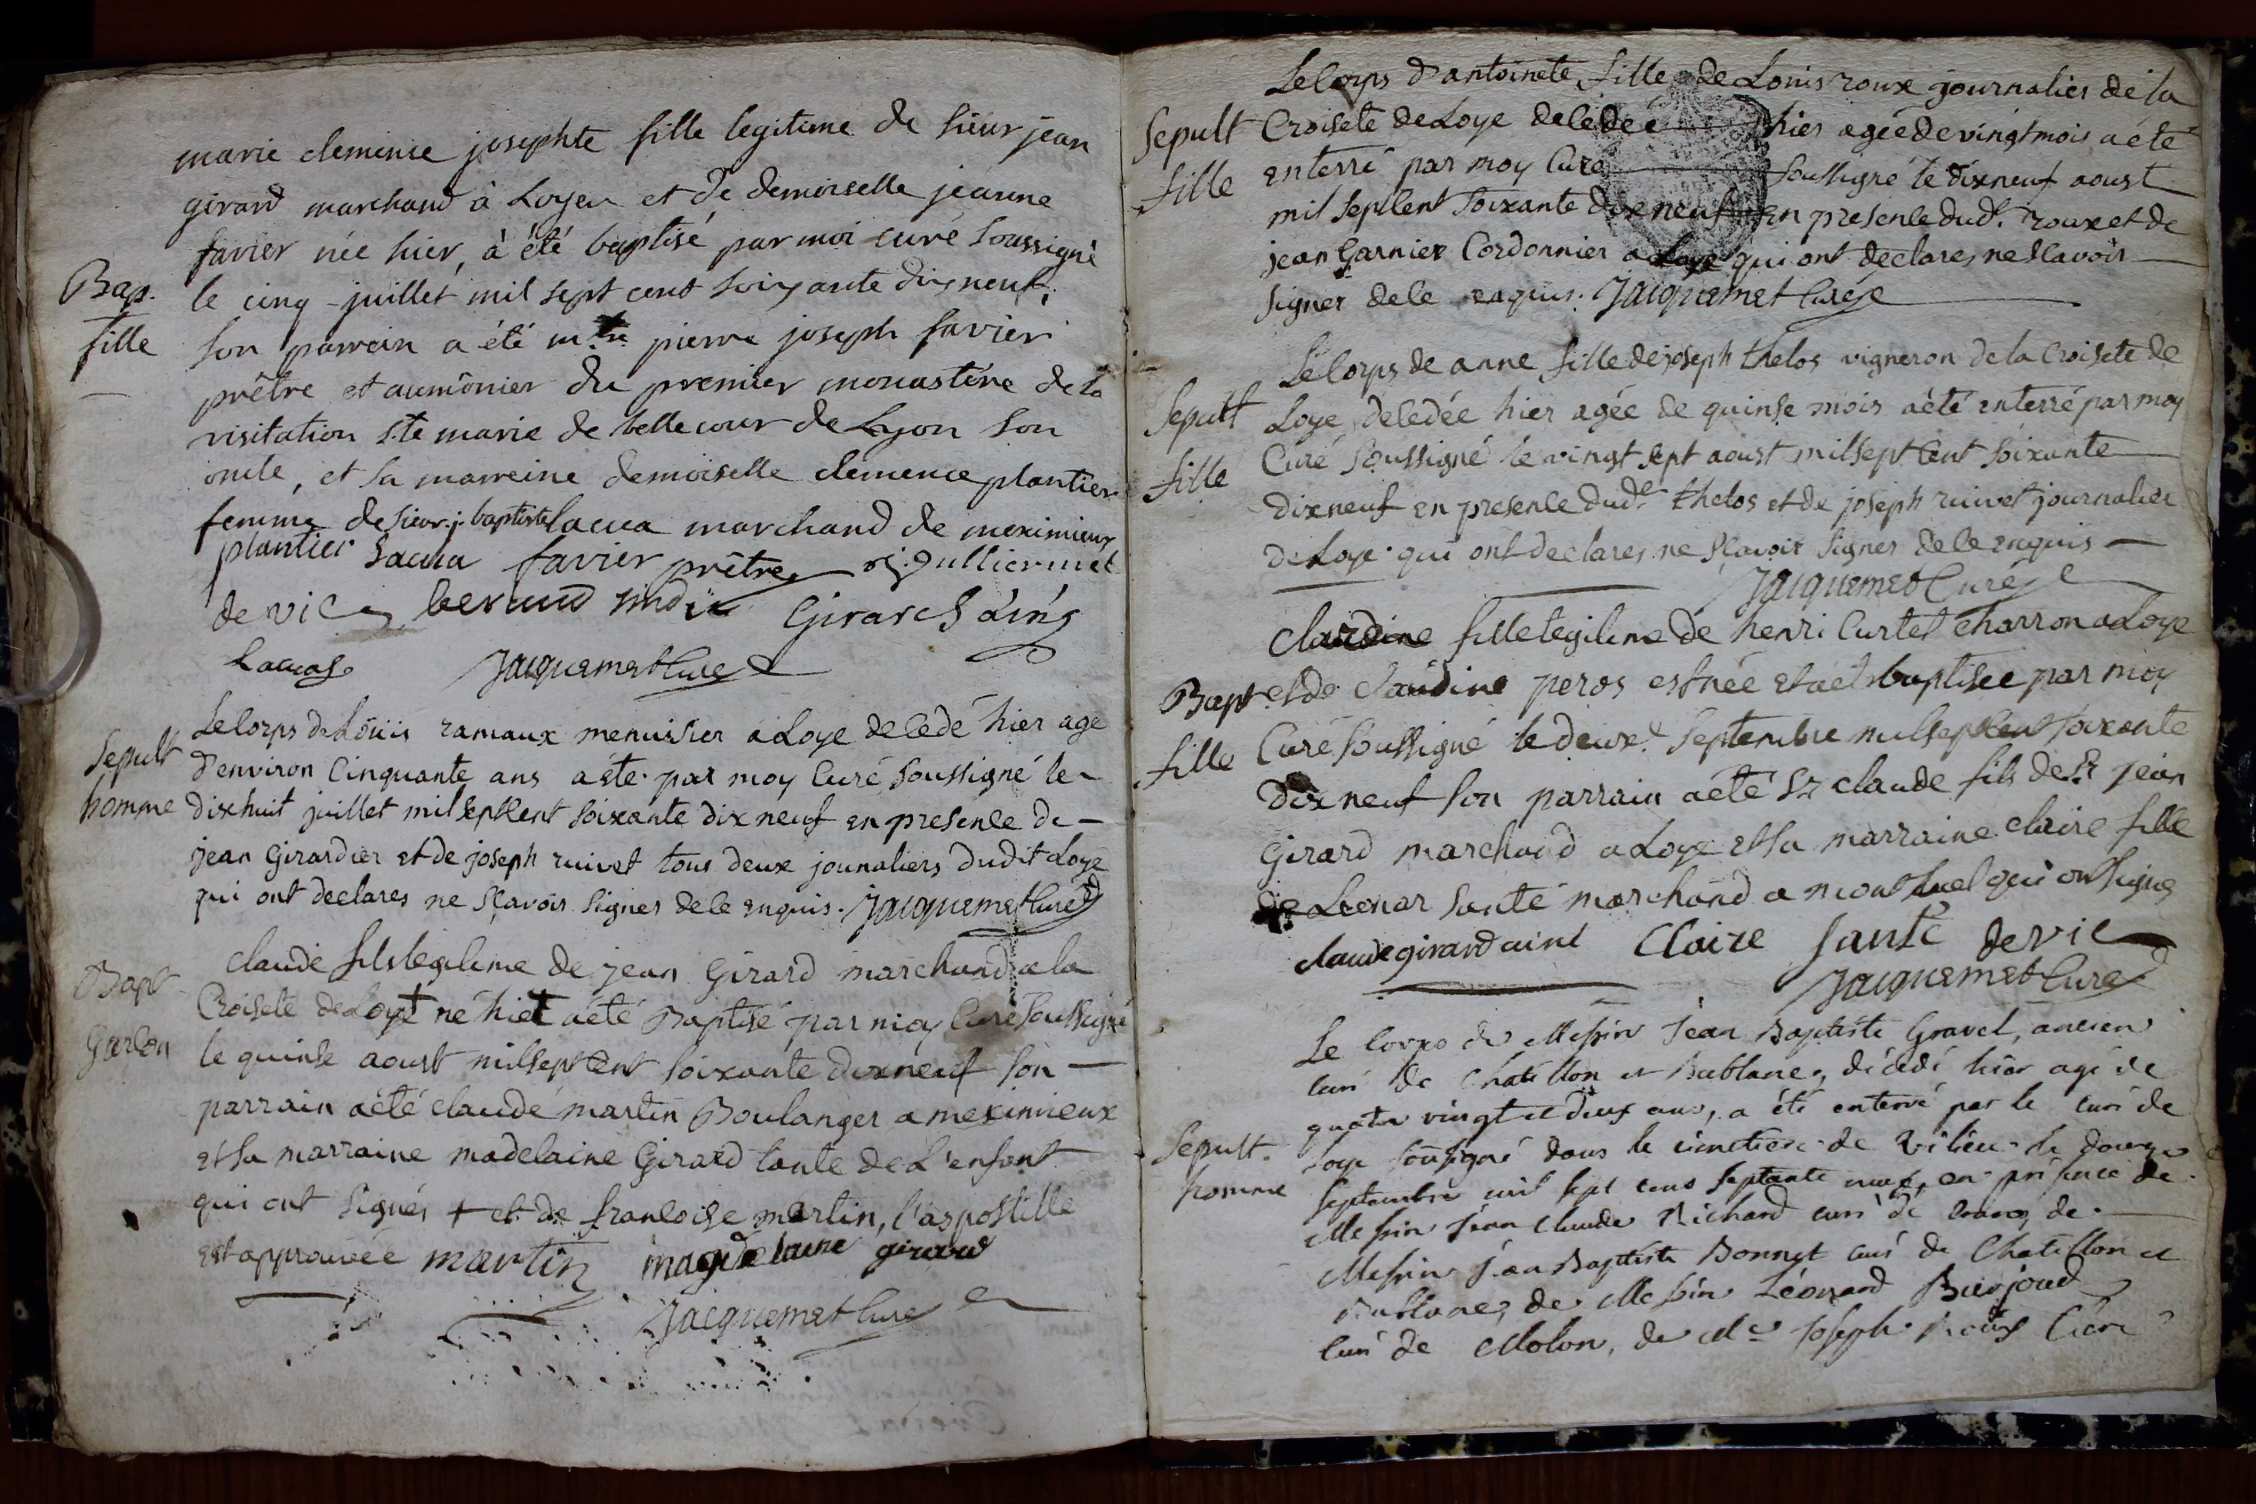 marie clemence josephte fille legitime de sieur jean
girard marchand à Loyes et de demoiselle jeanne
favier née hier, à été baptisé par moi curé soussigné
Bap.
fille
le cinq juillet mil sept cent soixante dix neuf,
son parrein a été m.re pierre joseph favier
prêtre et aumônier du premier monastére de la
visitation s.te marie de belle cour de Lyon son
oncle, et sa marreine demoiselle clemence plantier
femme de sieur j. baptiste lacua marchand de meximieux
plantier Lacua favier prêtre
de vic beraud Girard L'ainé
Jacquemet Curé
Sepult
homme
Le Corps de Loüis ramaux menuisier a Loye decedé hier agé
d'environ Cinquante ans a été par moy Curé soussigné le
dixhuit juillet mil sept Cent soixante dix neuf en presence de
jean Girardier et de joseph ruivet tous deux jounaliers dudit Loye
qui ont declares ne sçavoir signer de ce enquis. Jacquemet Curé
Bapt
Garcon
Claude fils legitime de jean Girard marchand a la
Croisete de Loye + né hier a été Baptisé par moy Curé soussigné
le quinse aoust mil sept Cent soixante dix neuf son
parrain a été claude martin Boulanger a meximieux
et sa marraine madelaine Girard tante de L'enfant
qui ont signés + et de francoise martin, l'aspostille
est approuvée martin magdelaine girard
Jacquemet Curé
Le Corps d'antoinete fille de Louis roux journalier de la
Sepult
fille
Croisete de Loye decedée hier agée de vingt mois a été
enterré par moy Curé soussigné le dixneuf aoust
mil sept Cent soixante dix neuf en presence dud.t roux et de
jean Garnier Cordonnier a Loye qui ont declares ne sçavoir
signer de ce enquis. Jacquemet Curé
Sepult
fille
Le Corps de anne fille de joseph thelos vigneron de la Croisete de
Loye decedée hier agée de quinse mois a été enterré par moy
Curé soussigné le vingt sept aoust mil sept Cent soixante
dixneuf en presence dud.t thelos et de joseph ruivet journalier
de Loye qui ont declares ne sçavoir signer de ce enquis
Jacquemet Curé
Claudine fille legitime de henri Curtet charron a Loye
Bapt
fille
et de Claudine peros est née et a été baptisée par moy
Curé soussigné le deux septembre mil sept Cent soixante
dix neuf son parrain a été Sr claude fils de Sr jean
Girard marchand a Loye et sa marraine claire fille
de Leonar santé marchand a montluel qui ont signé
claude girard ainé Claire santé de vic
Jacquemet Curé
Sepult.
homme
Le Corps de Messire Jean Baptiste Gravel, ancien
curé de Chatillon et Bublane, décédé hier agé de
quatre vingt et deux ans, a été enterré par le curé de
Loye soussigné dans le cimetiere de Vilieu le douze
septembre mil sept cens septante neuf, en présence de
Messire Jean Claude Richard curé de de
Messire Jean Baptiste Bonnet curé de Chatillon et
Bublane, de Messire Léonard Burjoud
curé de Molon, de Me Joseph